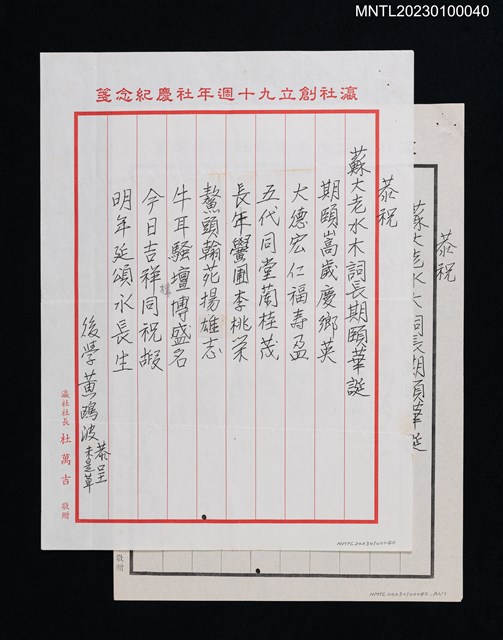 MNTL20230100040
瀛社創立九十週年社慶紀念箋
恭祝
蘇大老水木詞長期頤華誕
期頤嵩歲慶鄉英
大德宏仁福壽盈
五代同堂蘭桂茂
長年黌圃李桃榮
鰲頭翰苑揚雄志
牛耳騷壇博盛名
今日吉祥同祝嘏
明年延頌水長生
後學黃鷗波恭呈
未是草
瀛社社長 杜萬吉 敬贈
NMTL20230100040
恭祝
蘇大老水木詞長期頤華誕
敬贈